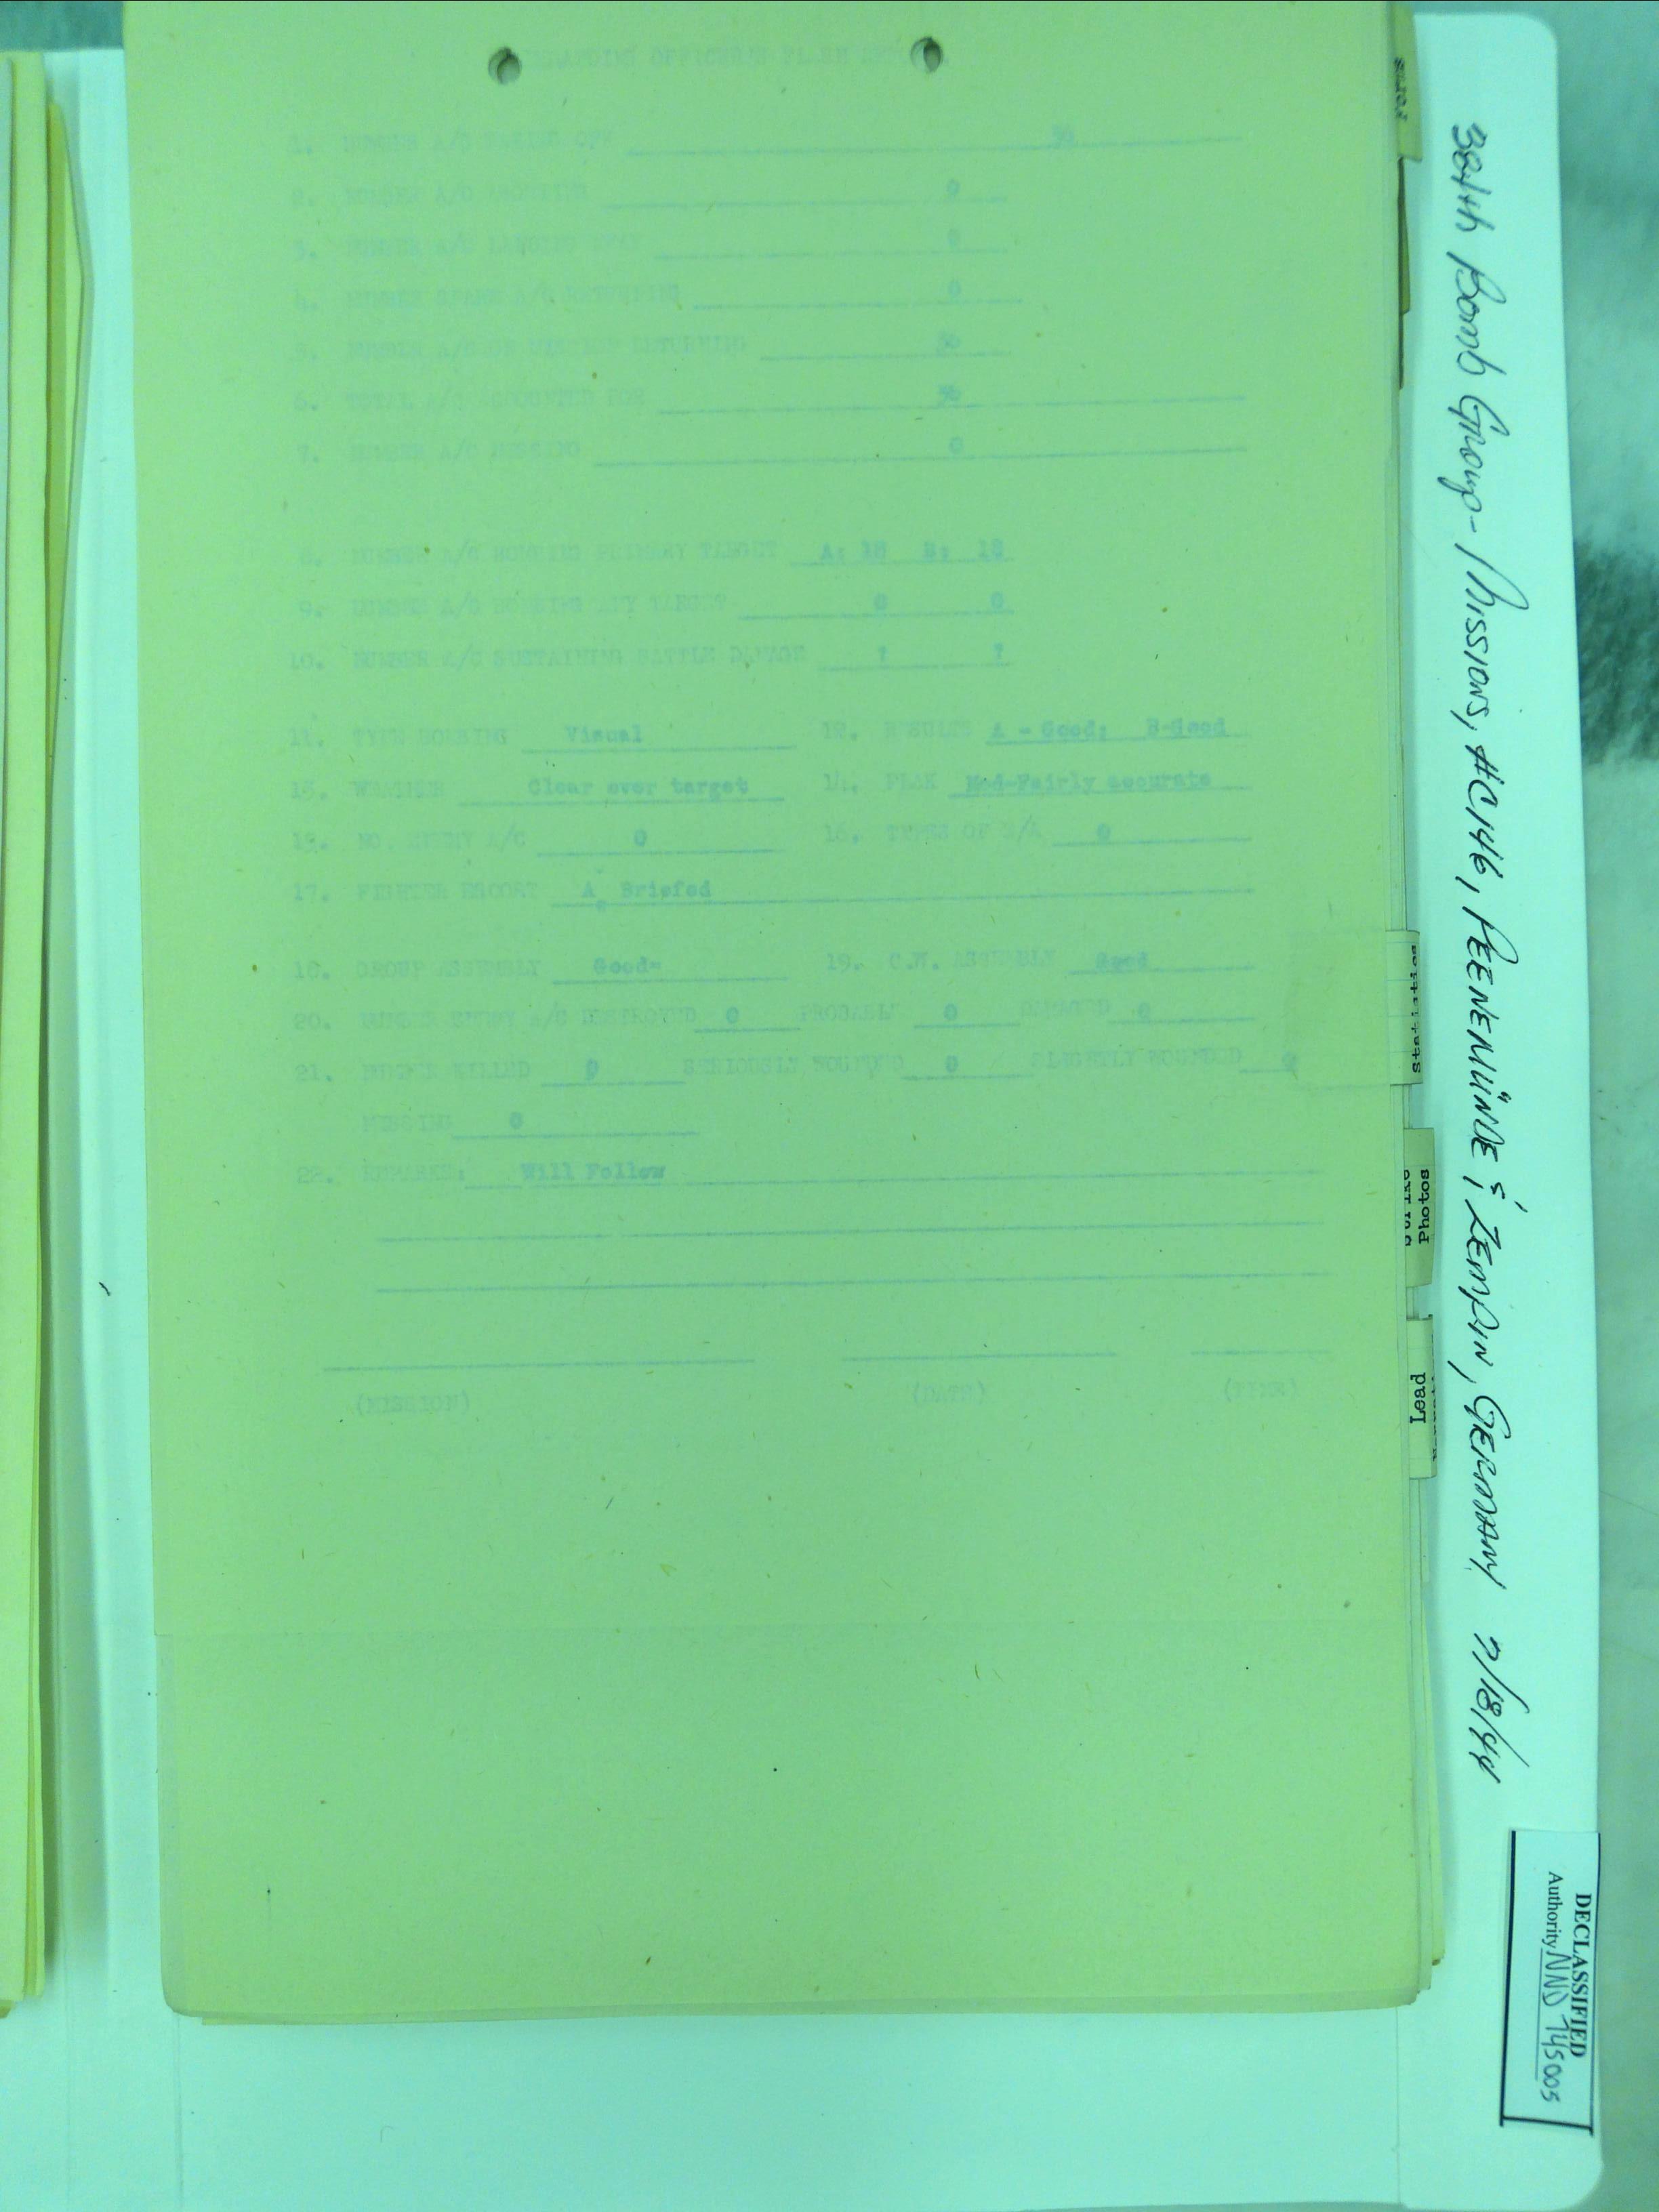 COMMANDING OFFICERS FLASH REPORT
1. NUMBER A/C TAKING OFF 36
2. NUMBER A/C ABORTING 0
3. NUMBER A/C LANDING AWAY 0
4. NUMBER SPARE A/C RETURNING 0
5. NUMBER A/C OF MISSION RETURNING 36
6. TOTAL A/C ACCOUNTED FOR 36
7. NUMBER A/C MISSING 0
8. NUMBER A/C BOMBING PRIMARY TARGET A: 18 B: 18
9. NUMBER A/C BOMBING ANY TARGET 0 0
10. NUMBER A/C SUSTAINING BATTLE DAMAGE ? ?
11. TYPE BOMBING Visual 12. RESULTS A - Good; B-Good
13. WEATHER Clear over target 14. FLAK Mod-Fairly accurate
15. NO. ENEMY A/C 0 16. TYPES OF E/A 0
17. FIGHTER ESCORT As Briefed
18. GROUP ASSEMBLY Good- 19. C.W. ASSEMBLY Good
20. NUMBER ENEMY A/C DESTROYED 0 PROBABLY 0 DAMAGED 0
21. NUMBER KILLED 0 SERIOUSLY WOUNDED 0 SLIGHTLY WOUNDED 0
MISSING 0
22. REMARKS: Will Follow
(MISSION) (DATE) (TIME)
Forms
Statistics
Strike
Photos
Lead
384th Bomb Group - Missions, #C146, PEENEMÜNDE & ZEMPIN, GERMANY 7/18/44
DECLASSIFIED
Authority NND 745005